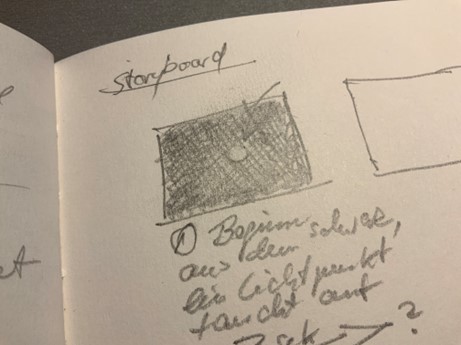 storyboard
① Beginn
aus dem schwarz,
ein Lichtpunkt
taucht auf
sek ?